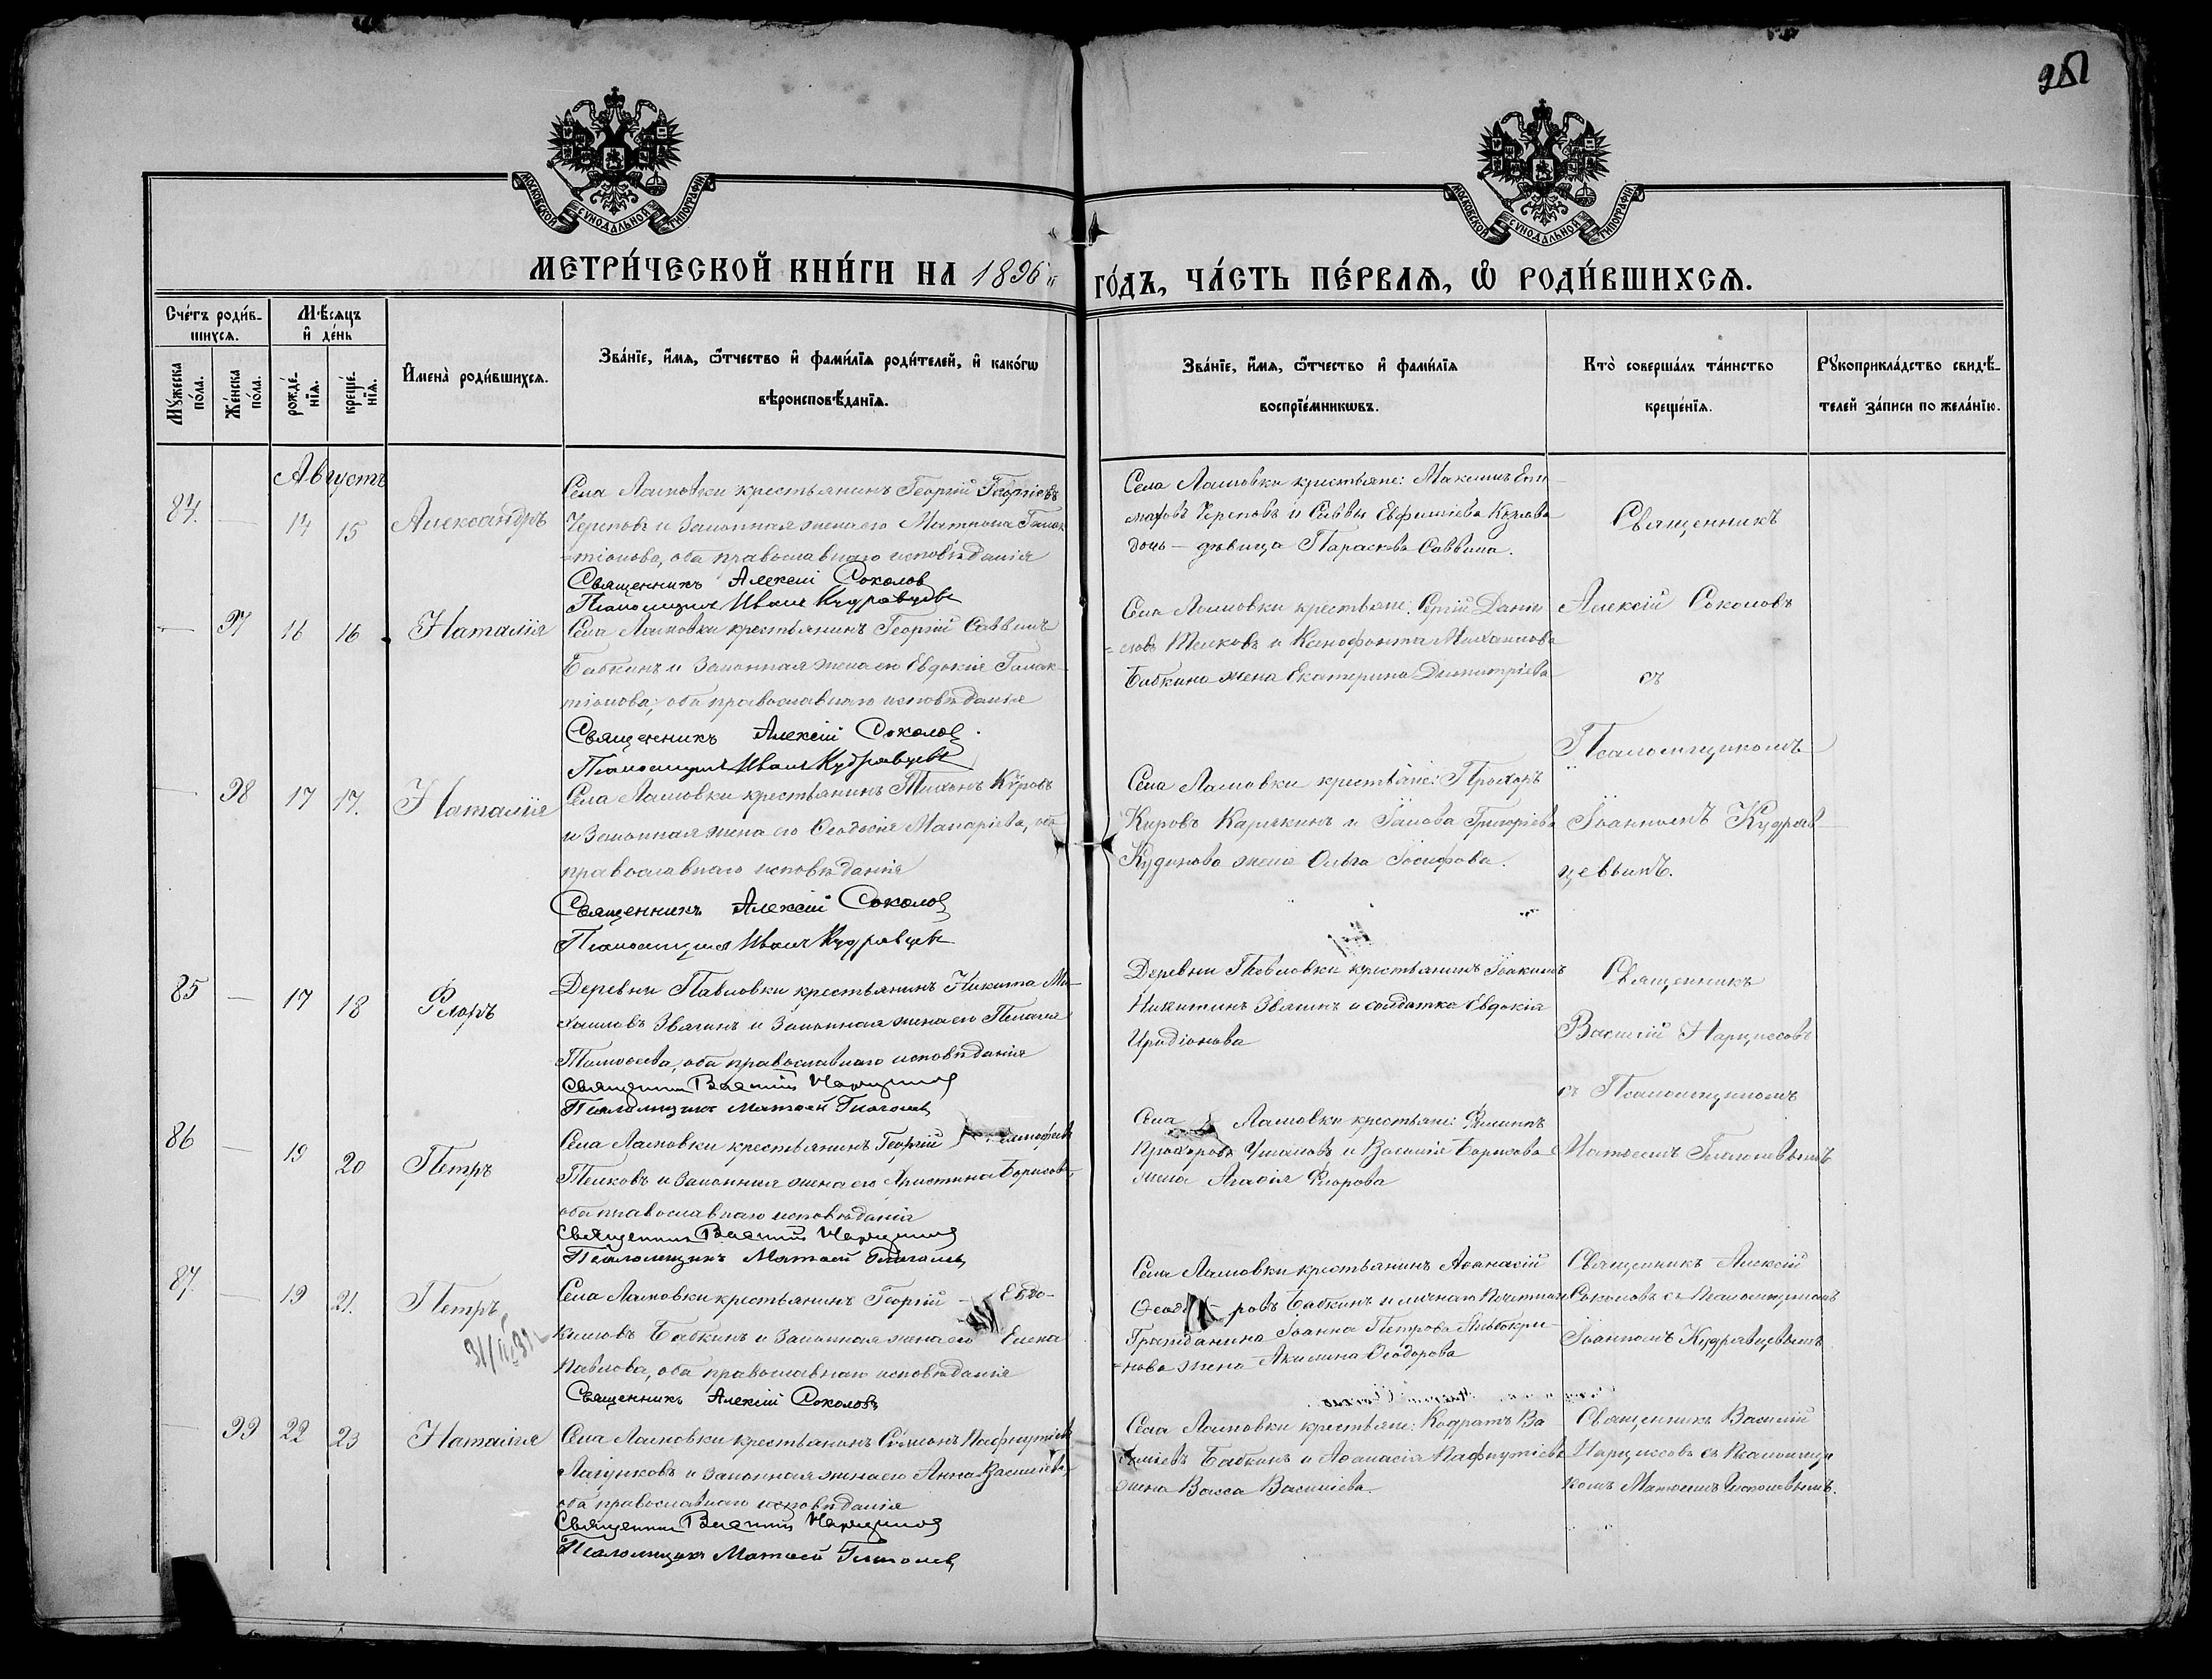 251
МОСКОВСКОЙ СѴНОДАЛЬНОЙ ТИПОГРАФІИ
МОСКОВСКОЙ СѴНОДАЛЬНОЙ ТИПОГРАФІИ
МЕТРИ́ЧЕСКОЙ КНИ́ГИ НА 1896
ГО́ДЪ, ЧА́СТЬ ПЕ́РВАѦ, Ѡ РОДИ́ВШИХСѦ.
Сче́тъ роди́в-
шихсѧ.
Мѣ́сѧцъ
и де́нь
Мꙋ́жеска
по́ла.
Же́нска
по́ла.
рожде́-
нїѧ.
креще́-
нїѧ.
И҆мена̀ роди́вшихсѧ.
Зва́нїе, и҆́мѧ, ѻ҆́тчество и҆ фами́лїѧ роди́телей, и҆ како́гѡ
вѣроисповѣ́данїѧ.
Зва́нїе, и҆́мѧ, ѻ҆́тчество и҆ фами́лїѧ
воспрїе́мникѡвъ.
Кто̀ соверша́лъ та́инство
креще́нїѧ.
Рꙋкоприкла́дство свидѣ́-
телей за́писи по жела́нїю.
Августъ
84. — 14 15 Александръ
Села Ламовки крестьянинъ Георгій Георгіевъ
Череповъ и законная жена его Матрона Галак
=тіонова, оба православнаго исповѣданія
Священникъ Алексій Соколов
Псаломщикъ Иванъ Кудрявцевъ
Села Ламовки крестьяне: Максимъ Епи
маховъ Череповъ и Саввы Евфиміева Козлова
дочь — дѣвица Параскева Саввина.
Священникъ
— 97 16 16 Наталія
Села Ламовки крестьянинъ Георгій Саввинъ
Бабкинъ и законная жена его Евдокія Галак-
тіонова, оба православнаго исповѣданія
Священникъ Алексій Соколов.
Псаломщикъ Иванъ Кудрявцевъ
Села Ламовки крестьяне: Сергій Дани
=ловъ Телковъ и Ксенофонта Михаилова
Бабкина жена Екатерина Димитріева
Алексій Соколовъ
съ
Псаломщикомъ
— 98 17 17. Наталія
Села Ламовки крестьянинъ Тихонъ Кировъ
и законная жена его Ѳеодосія Макаріева, оба
православнаго исповѣданія
Священникъ Алексій Соколов
Псаломщикъ Иванъ Кудрявцевъ
Села Ламовки крестьяне: Прохоръ
Кировъ Карякинъ и Іакова Григоріева
Кудинова жена Ольга Іосифова.
Іоанномъ Кудряв-
цевымъ.
85 — 17 18 Флоръ
Деревни Павловки крестьянинъ Никита Ми-
хаиловъ Звягинъ и законная жена его Пелагія
Тимоѳеева, оба православнаго исповѣданія
Священникъ Василій Нарциссов
Псаломщикъ Матѳей Глаголев
Деревни Павловки крестьянинъ Іоакимъ
Никитинъ Звягинъ и солдатка Евдокія
Иродіонова
Священникъ
Василій Нарциссовъ
съ Псаломщикомъ
86 — 19 20 Петръ
Села Ламовки крестьянинъ Георгій
Телковъ и законная жена его Христина Борисова,
оба православнаго исповѣданія
Священникъ Василій Нарциссов
Псаломщикъ Матѳей Глаголевъ
Села Ламовки крестьяне: Филиппъ
Прохоровъ Ушаковъ и Василія Борисова
жена Агаѳія Флорова
Матѳеемъ Глаголевымъ
87. — 19 21. Петръ
Села Ламовки крестьянинъ Георгій — Евдо-
кимовъ Бабкинъ и законная жена его Елена
Павлова, оба православнаго исповѣданія
Священникъ Алексій Соколовъ
Села Ламовки крестьянинъ Аѳанасій
Ѳеодоровъ Бабкинъ и личнаго Почетнаго
Гражданина Іоанна Петрова
=нова жена Акилина Ѳеодорова
Священникъ Алексій
Соколовъ съ Псаломщикомъ
Іоанномъ Кудрявцевымъ
— 99 22 23 Наталія
Села Ламовки крестьянинъ Симеонъ Пафнутіевъ
Лагунковъ и законная жена его Анна Васильева,
оба православнаго исповѣданія
Священникъ Василій Нарциссов
Псаломщикъ Матѳей Глаголев
Села Ламовки крестьяне: Кодратъ Ва
сильевъ Бабкинъ и Аѳанасія Пафнутіева
жена Васса Васильева
Священникъ Василій
Нарциссовъ съ Псаломщи
комъ Матѳеемъ Глаголевымъ.